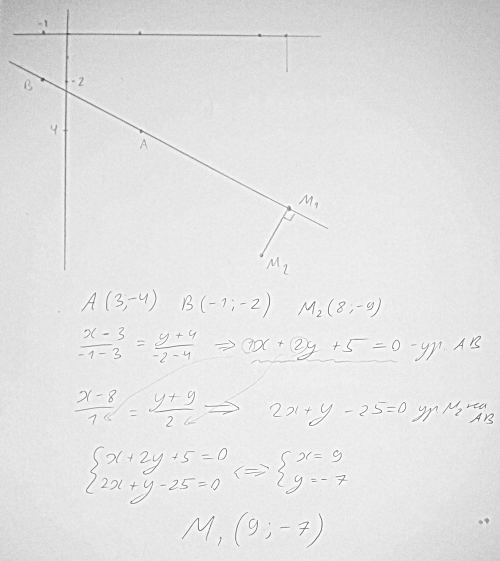 -1
B
-2
4
A
M₁
M₂
A (3;-4) B (-1;-2) M₂ (8;-9)
x-3/-1-3 = y+4/-2-4 ⇒ 1x + 2y + 5 = 0 - ур. AB
x-8/1 = y+9/2 ⇒ 2x+y-25=0 ур M₂ на AB
{x+2y+5=0 2x+y-25=0 <=> {x=9 y=-7
M₁ (9;-7)